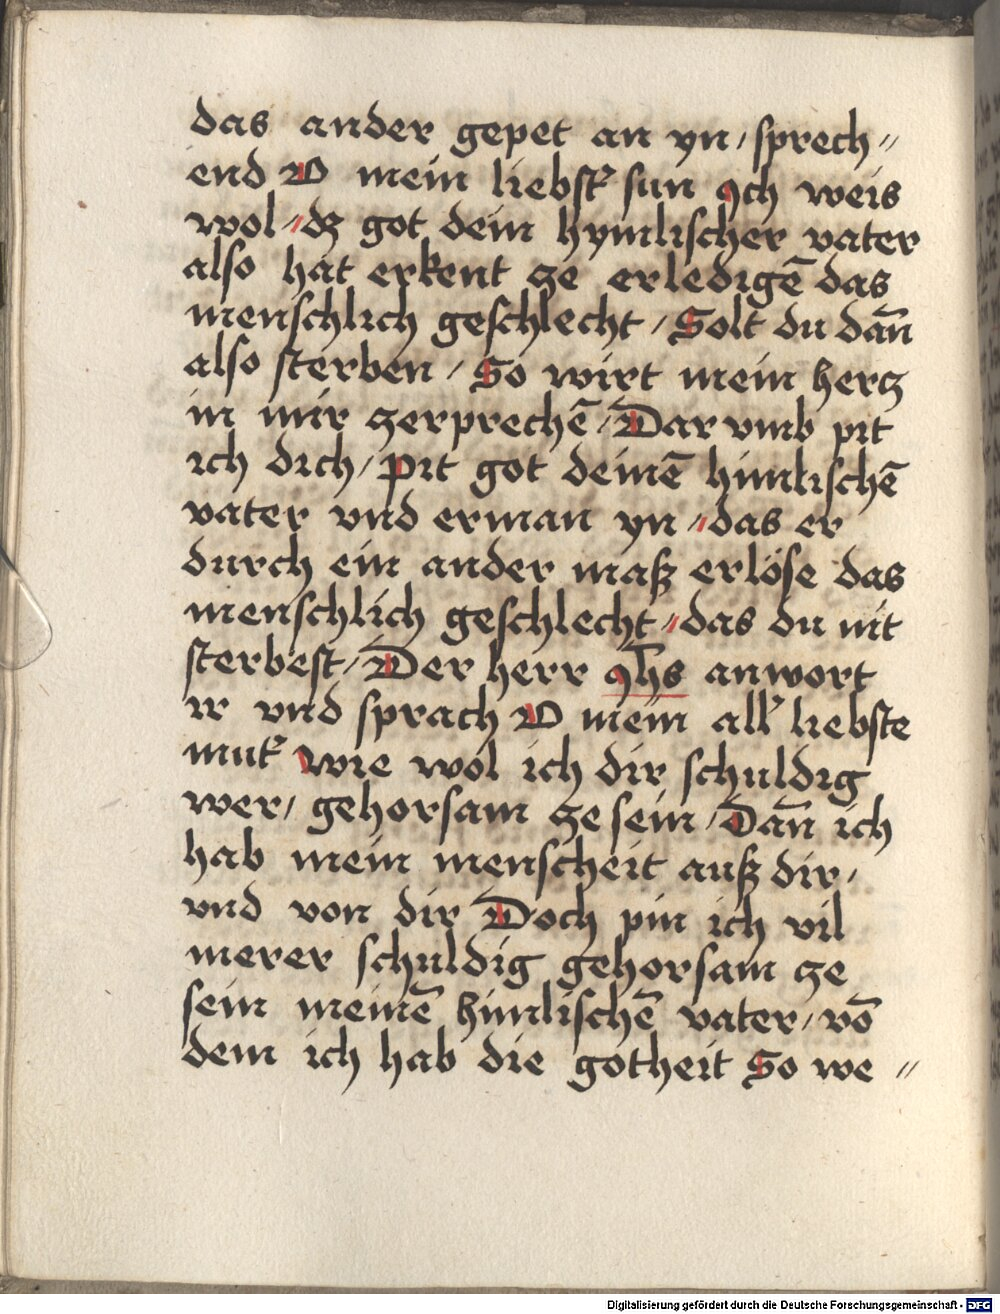 das ander gepet an yn / sprech //
end O mein liebst' sun Ich weis
wol // dz got dein hymlischer vater
also hat erkent ze erledigē das
menschlich geschlecht / Solt du dañ
also sterben / So wirt mein hercz
in mir zerprechē / Dar vmb pit
ich dich / Pit got deinē himlischē
vater vnd erman yn // das er
durch ein ander masz erlöse das
menschlich geschlecht // das du nit
sterbest / Der herr Jhs anwort
ir vnd sprach O mein all' liebste
mut' Wie wol ich dir schuldig
wer / gehorsam ze sein / Dañ ich
hab mein menscheit ausz dir /
vnd von dir Doch pin ich vil
merer schuldig gehorsam ze
sein meinē himlischē vater / vō
dem ich hab die gotheit So we //
Digitalisierung gefördert durch die Deutsche Forschungsgemeinschaft - DFG